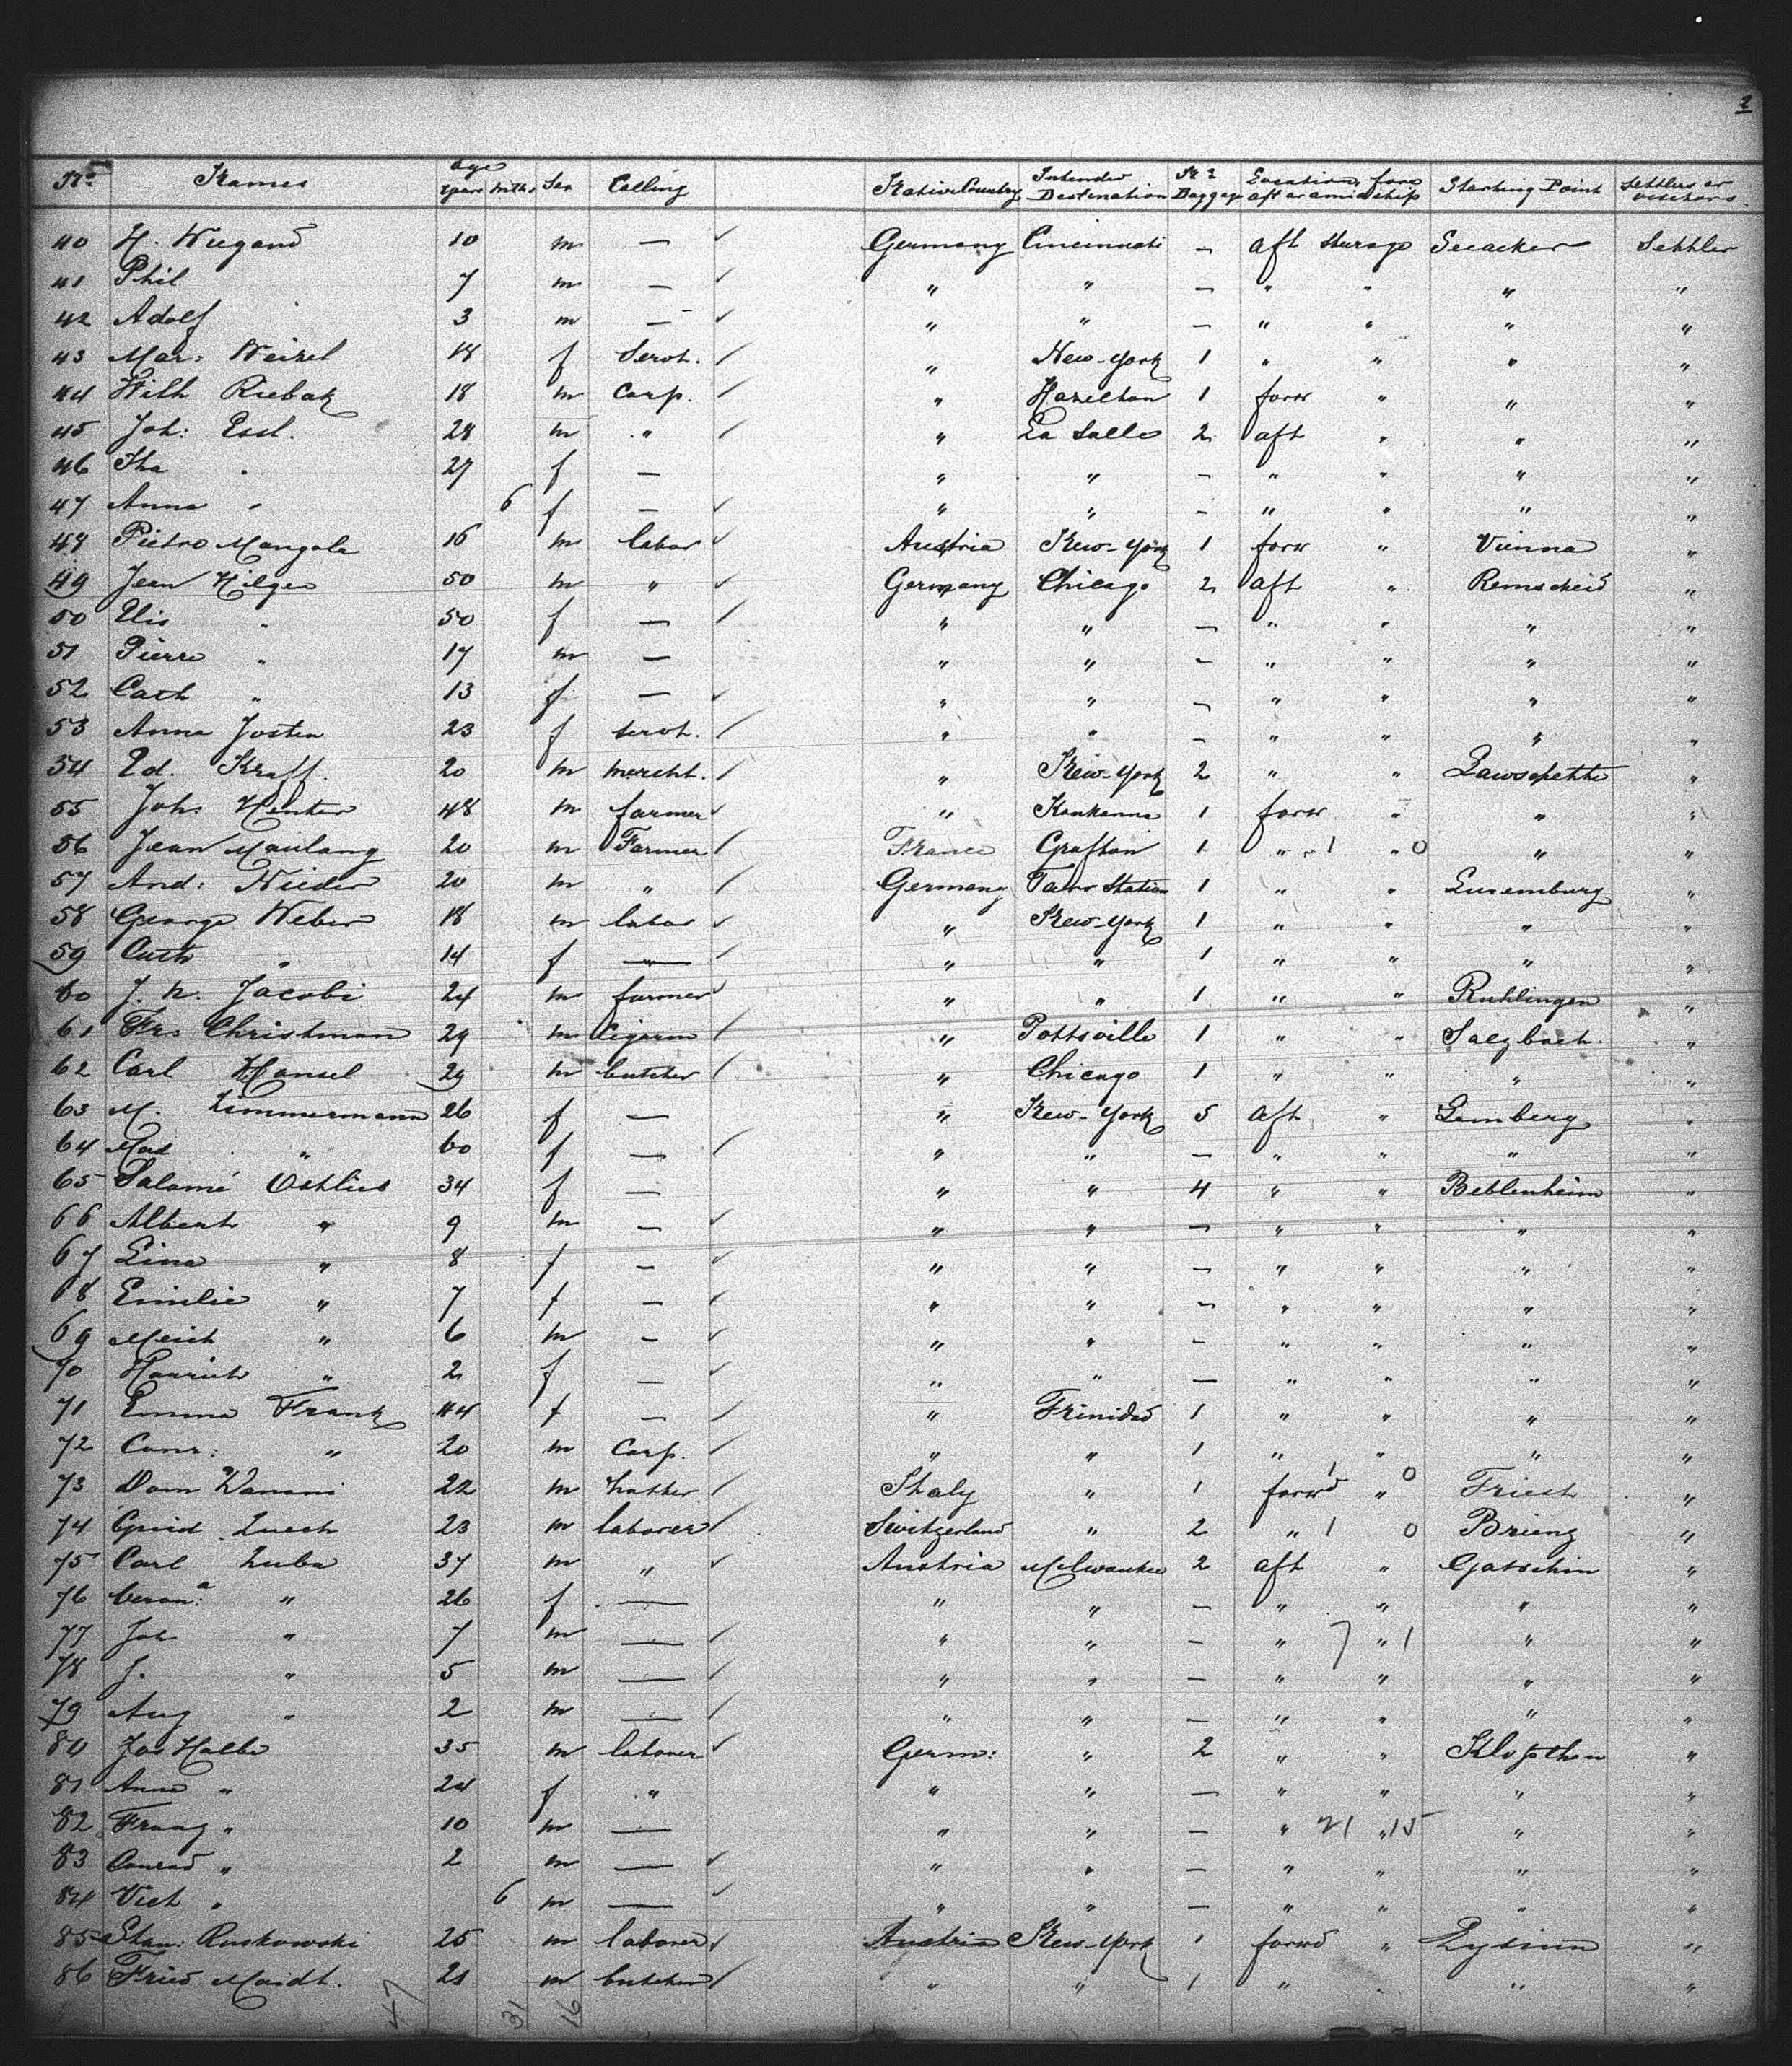 2
No. Names Age Years Mths Sex Calling Native Country Intended Destination No. Baggage Location, fore aft or amidship Starting Point Settlers or visitors
40 H. Wiegand 10 m — Germany Cincinnati — aft sturage Settler
41 Phil 7 m — " " — " " " "
42 Adolf 3 m — " " — " " " "
43 Mar: Weizel 18 f Servt. " New-York 1 " " " "
44 Wilh Riebak 18 m Carp. " Hazelton 1 forw " " "
45 Joh: Essl. 28 m " " La Salle 2 aft " " "
46 " 27 f — " " — " " " "
47 Anna " 6 f — " " — " " " "
48 Pietro Mangole 16 m labor Austria New-York 1 forw " Vienna "
49 Jean Hilger 50 m " Germany Chicago 2 aft " Remscheid "
50 Elis " 50 f — " " — " " " "
51 Pierre " 17 m — " " — " " " "
52 Cath " 13 f — " " — " " " "
53 Anna Josten 23 f servt. " " — " " " "
54 Ed. Kraff. 20 m mercht. " New-York 2 " " "
55 Joh: Henter 48 m farmer " Kaukanna 1 forw " " "
56 Jean Maulang 20 m Farmer France Grafton 1 " 1 " 0 " "
57 And: Nieder 20 m " Germany Tarr Station 1 " " Luxemburg "
58 George Weber 18 m labor " New-York 1 " " " "
59 Cath " 14 f — " " 1 " " " "
60 J. N. Jacobi 24 m farmer " " 1 " " Ruhlingen "
61 Frs Christman 29 m Cigarm " Pottsville 1 " " Salzbach. "
62 Carl Hansel 29 m butcher " Chicago 1 " " " "
63 M. Zimmermann 26 f — " New-York 5 aft " Lemberg "
64 Mad " 60 f — " " — " " " "
65 Salomé Oehlies 34 f — " " 4 " " Beblenheim "
66 Albert " 9 m — " " — " " " "
67 Lina " 8 f — " " — " " " "
68 Emilie " 7 f — " " — " " " "
69 Meich " 6 m — " " — " " " "
70 Hanrich " 2 f — " " — " " " "
71 Emma Frank 44 f — " Trinidad 1 " " " "
72 Conr: " 20 m Carp. " " 1 " " " "
73 Dom Wanani 22 m hatter Italy " 1 forwd 1 " 0 Triest "
74 Guid Zuech 23 m laborer Switzerland " 2 " 1 0 Brienz "
75 Carl Zuba 37 m " Austria Milwaukee 2 aft " Gatschin "
76 Veron:a " 26 f — " " — " " " "
77 Joh " 7 m — " " — " 7 " 1 " "
78 J. " 5 m — " " — " " " "
79 Aug " 2 m — " " — " " " "
80 Jos Halbe 35 m laborer Germ: " 2 " " "
81 Anna " 24 f " " " — " " " "
82 Franz " 10 m — " " — " 21 " 15 " "
83 Conrad " 2 m — " " — " " " "
84 Vict " 6 m — " " — " " " "
85 Stan: Ruskowski 25 m laborer Austria New-York 1 forwd " "
86 Fried Maidt. 21 m butcher " " 1 " " " "
47 31 16